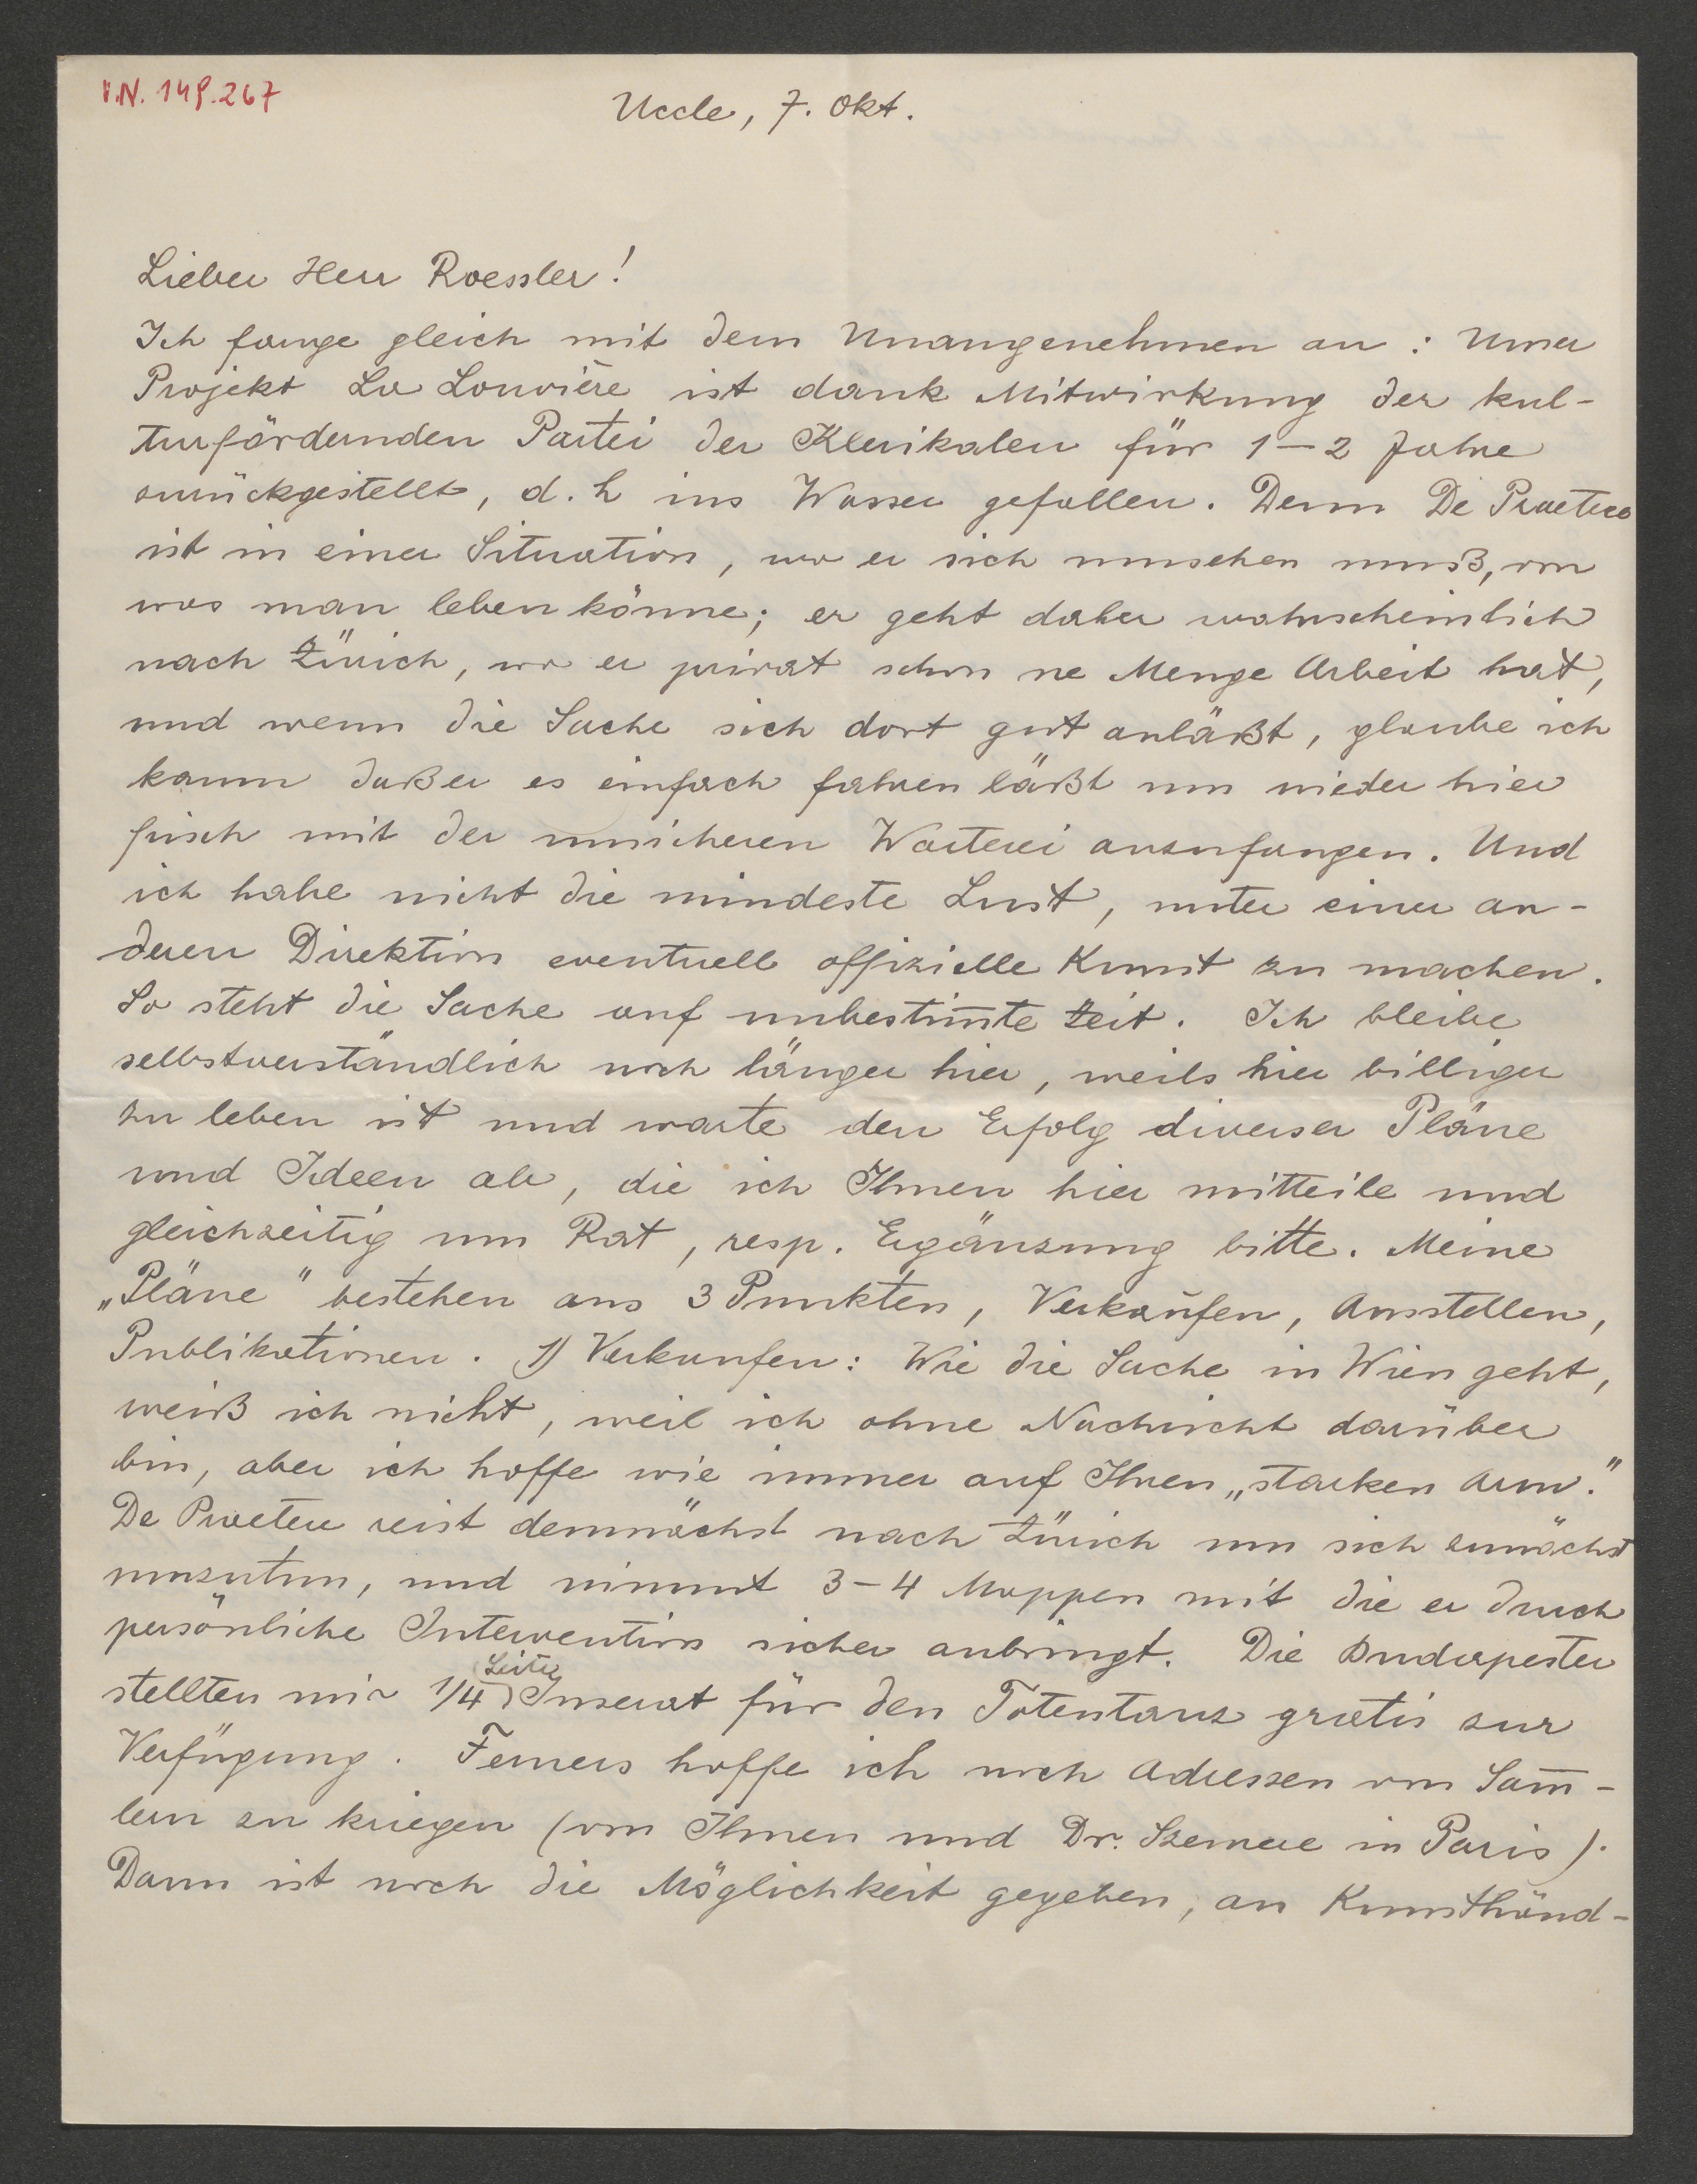 I.N. 149.267
Uccle, 7. Okt.
Lieber Herr Roessler!
Ich fange gleich mit dem Unangenehmen an: Unser
Projekt La Louvière ist dank Mitwirkung der kul-
turfördernden Partei der Klerikalen für 1–2 Jahre
zurückgestellt, d. h ins Wasser gefallen. Denn De Praetere
ist in einer Situation, wo er sich umsehen muß, von
was man leben könne; er geht daher wahrscheinlich
nach Zürich, wo er privat schon ne Menge Arbeit hat,
und wenn die Sache sich dort gut anläßt, glaube ich
kaum daß er es einfach fahren läßt um wieder hier
frisch mit der unsicheren Warterei anzufangen. Und
ich habe nicht die mindeste Lust, unter einer an-
deren Direktion eventuell offizielle Kunst zu machen.
So steht die Sache auf unbestim̅te Zeit. Ich bleibe
selbstverständlich noch länger hier, weils hier billiger
zu leben ist und warte den Erfolg diverser Pläne
und Ideen ab, die ich Ihnen hier mitteile und
gleichzeitig um Rat, resp. Ergänzung bitte. Meine
„Pläne" bestehen aus 3 Punkten, Verkaufen, Ausstellen,
Publikationen. 1) Verkaufen: Wie die Sache in Wien geht,
weiß ich nicht, weil ich ohne Nachricht darüber
bin, aber ich hoffe wie immer auf Ihren „starken Arm."
De Praetere reist demnächst nach Zürich um sich zunächst
umzutun, und nimmt 3–4 Mappen mit die er durch
persönliche Intervention sicher anbringt. Die Budapester
stellten mir 1/4 Seite Inserat für den Totentanz gratis zur
Verfügung. Ferners hoffe ich noch Adressen von Sam̅-
lern zu kriegen (von Ihnen und Dr. Szemere in Paris).
Dann ist noch die Möglichkeit gegeben, an Kunsthänd-